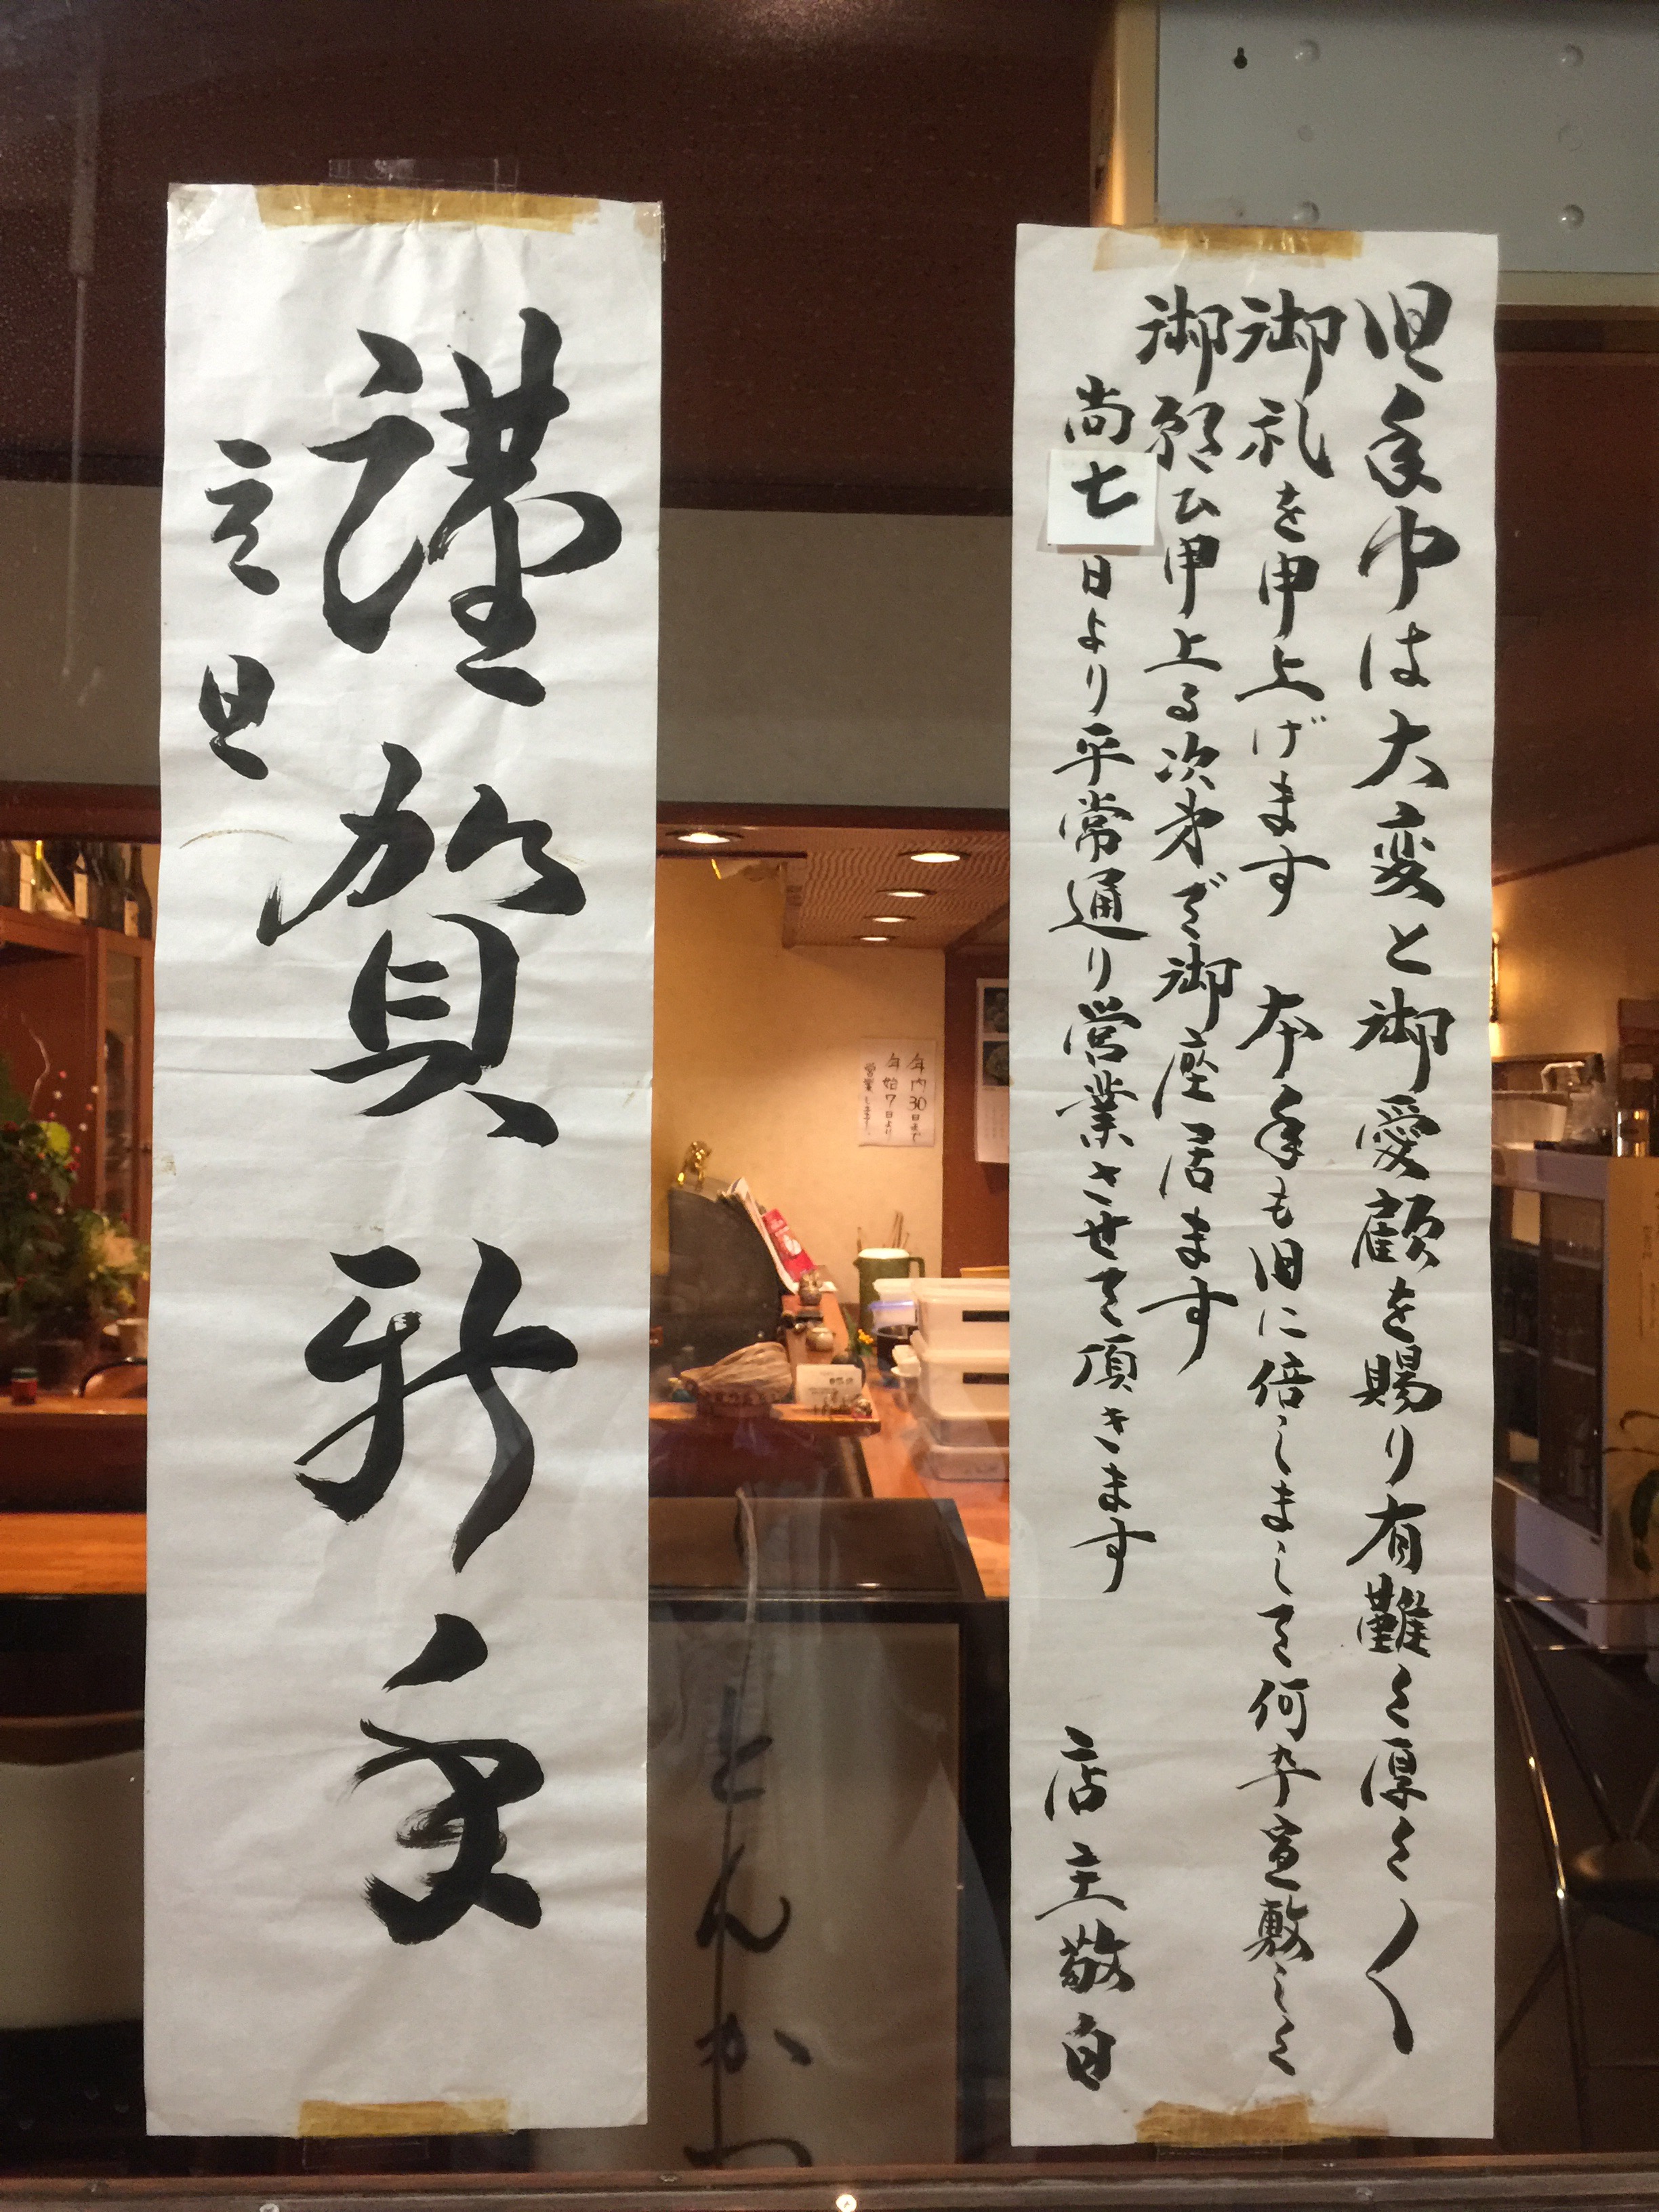 旧年中は大変と御愛顧を賜り有難く厚く〱
御礼を申上げます 本年も旧に倍しまして何卒宜敷しく
御願ひ申上る次第で御座居ます
尚七日より平常通り営業させて頂きます 店主敬白
年内30日まで
年始7日より
営業します。
とんかつ
謹賀新年
元旦